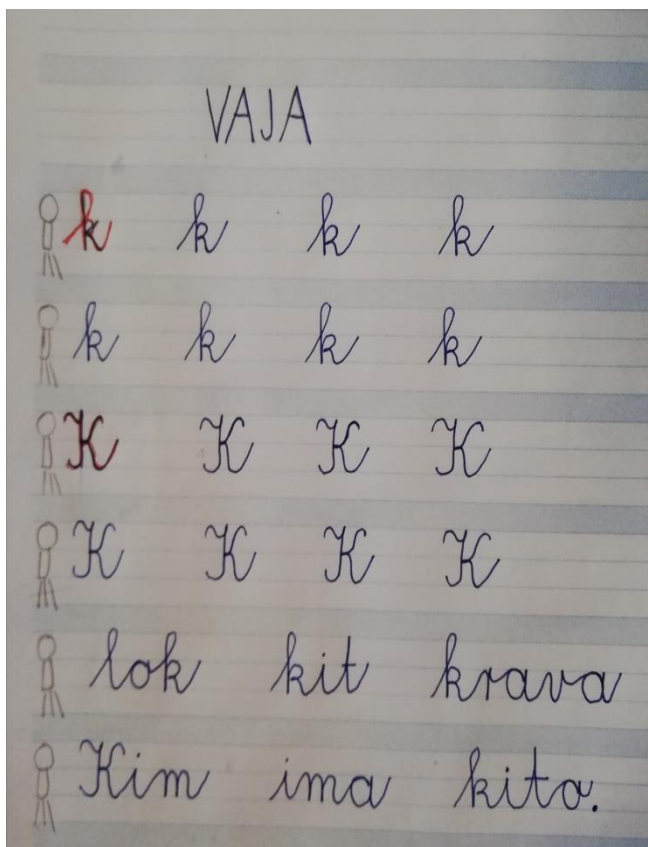 VAJA
k k k k
k k k k
K K K K
K K K K
lok kit krava
Kim ima kito.